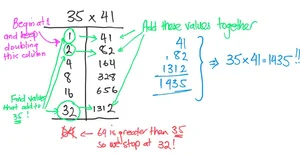 35 x 41
Begin at 1
and keep
doubling
this column
1 41
2 82
4 164
8 328
16 656
32 1312
64
Find values
that add to
35!
Add these values together
41
82
1312
1435
⇒ 35 x 41 = 1435!!
← 64 is greater than 35
so we stop at 32!